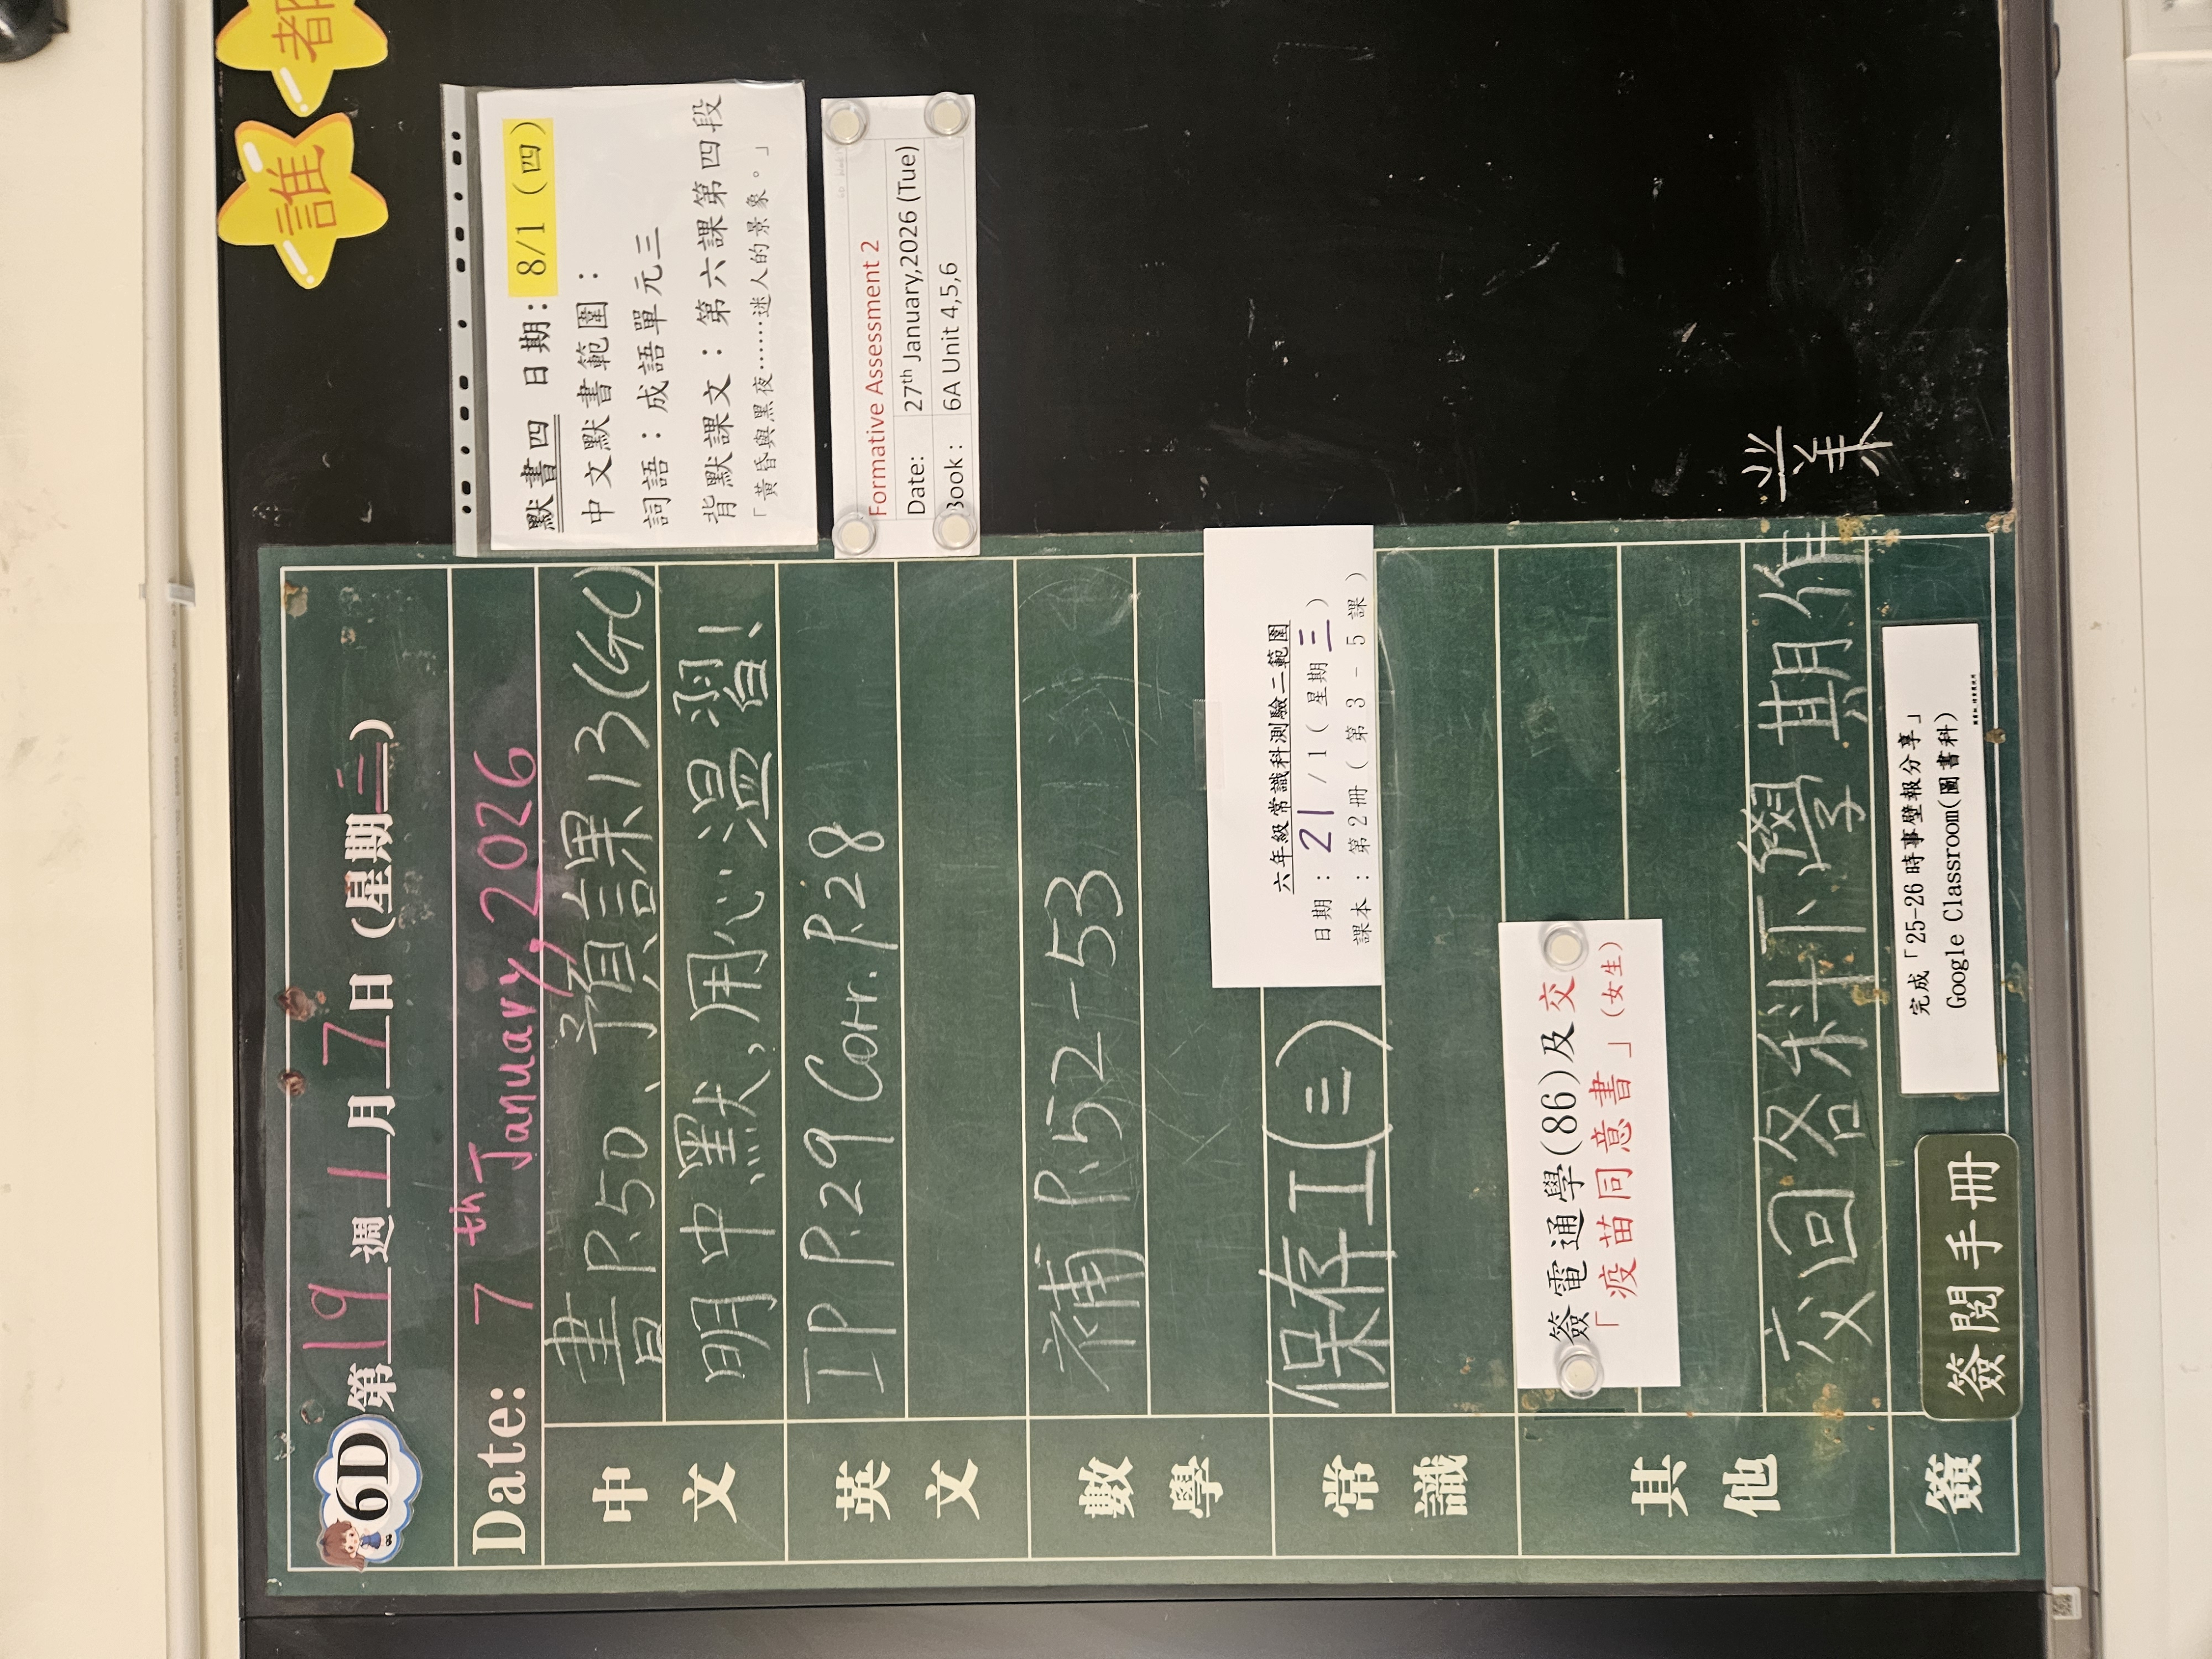 誰
都
6D 第19週1月7日(星期三)
Date: 7th January, 2026
中文
書P.50、預課13(GC)
明中默,用心溫習!
英文
IP P.29 Corr. P.28
數學
補P.52-53
常識
保存工(三)
六年級常識科測驗二範圍
日期:21/1(星期三)
課本:第2冊(第3-5課)
其他
簽電通學(86)及交
「疫苗同意書」(女生)
交回各科下學期作業
簽
簽閱手冊
完成「25-26時事壁報分享」
Google Classroom(圖書科)
默書四 日期:8/1(四)
中文默書範圍:
詞語:成語單元三
背默課文:第六課第四段
「黃昏與黑夜……迷人的景象。」
Formative Assessment 2
Date: 27th January,2026 (Tue)
Book: 6A Unit 4,5,6